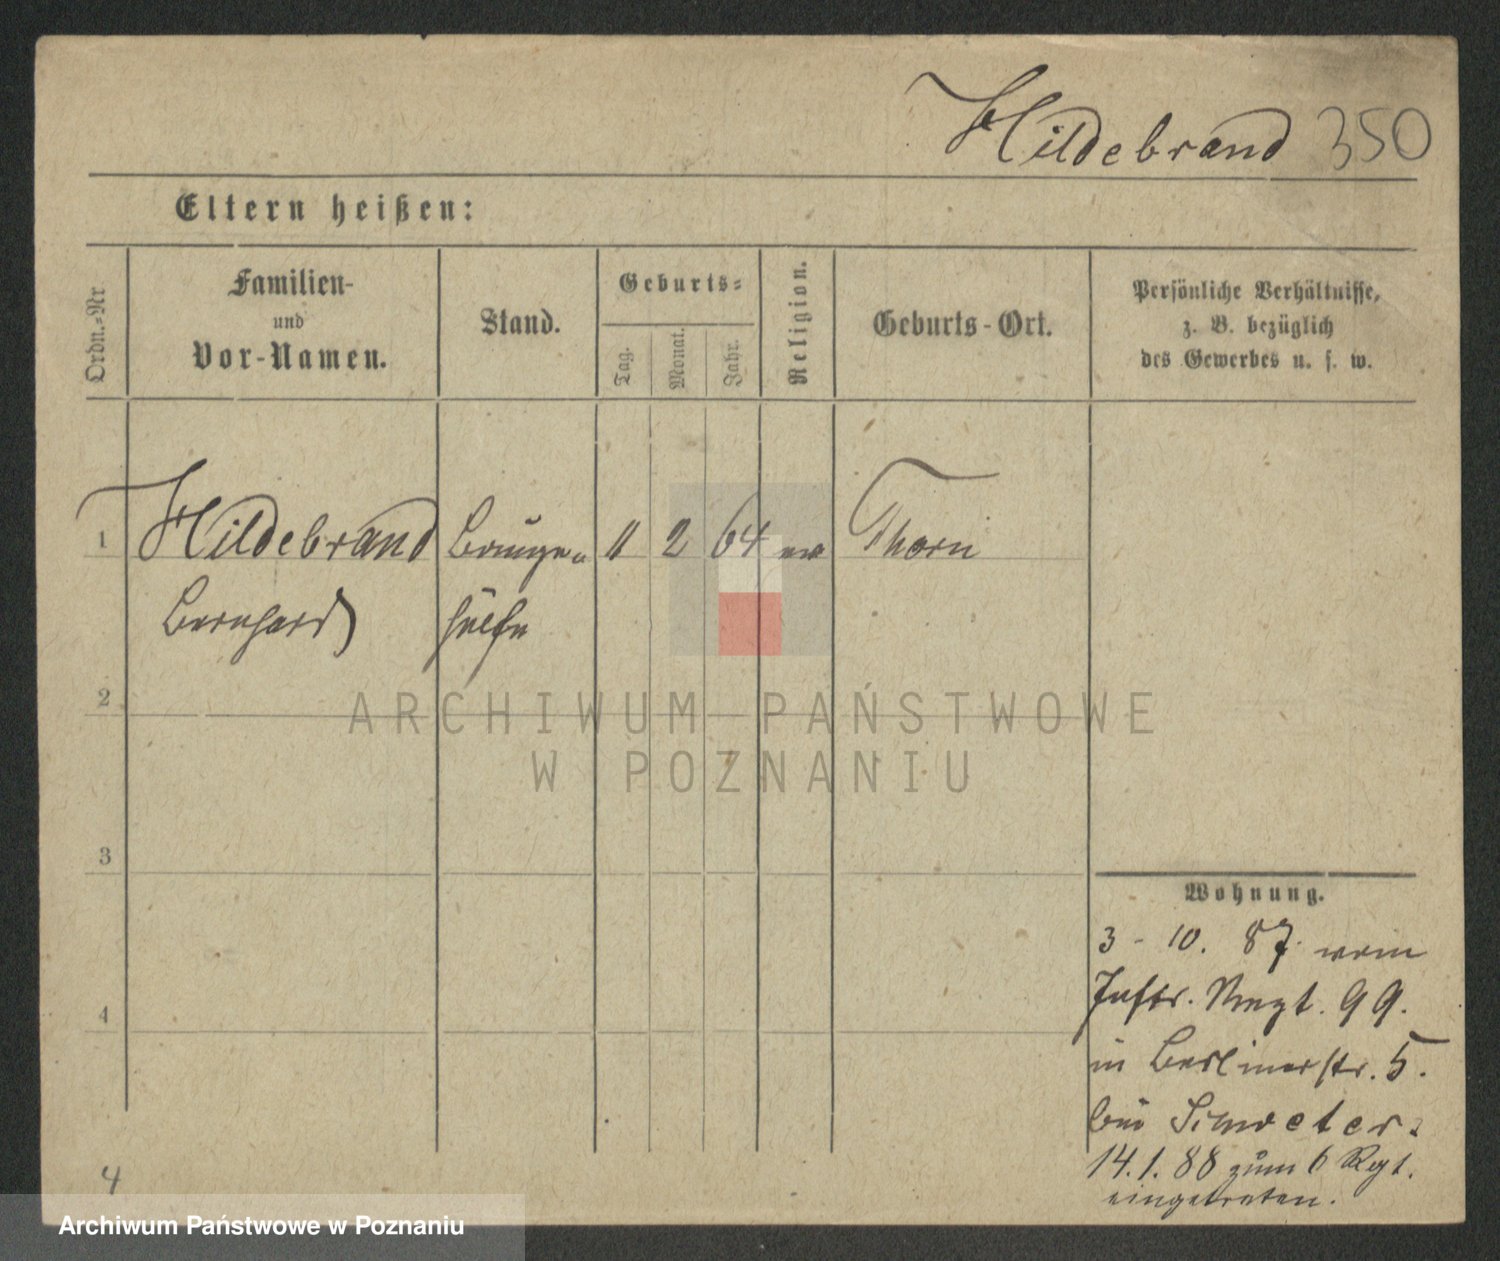 Hildebrand 350
Eltern heißen:
Ordn.-Nr
Familien-
und
Vor-Namen.
Stand.
Geburts-
Tag.
Monat.
Jahr.
Religion.
Geburts-Ort.
Persönliche Verhältnisse,
z. B. bezüglich
des Gewerbes u. s. w.
1 Hildebrand 11 2 64 ev Thorn
Bernhard
2
3
4
Wohnung.
3 - 10. 87 vom
Inftr. Regt. 99.
in Berlinerstr. 5.
bei
14.1.88 zum 6 Rgt.
eingetreten.
4
ARCHIWUM PAŃSTWOWE
W POZNANIU
Archiwum Państwowe w Poznaniu